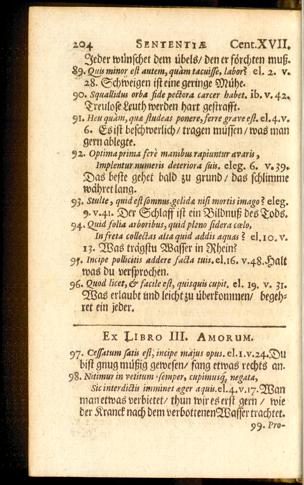 204 SENTENTIÆ Cent.XVII.
Jeder wünschet dem übels/ den er förchten muß.
89. Quis minor est autem, quàm tacuisse, labor? el. 2. v.
28. Schweigen ist eine geringe Mühe.
90. Squallidus orba fide pectora carcer habet. ib. v. 42.
Treulose Leuth werden hart gestrafft.
91. Heu quàm, qua studeas ponere, ferre grave est. el.4.v.
6. Es ist beschwerlich/ tragen müssen/ was man
gern ablegte.
92. Optima prima ferè manibus rapiuntur avaris,
Implentur numeris deteriora suis. eleg. 6. v.39.
Das beste gehet bald zu grund/ das schlimme
währet lang.
93. Stulte, quid est somnus, gelidæ nisi mortis imago? eleg.
9. v.41. Der Schlaff ist ein Bildnuß des Tods.
94. Quid folia arboribus, quid pleno sidera cœlo,
In freta collectas alta quid addis aquas? el.10. v.
13. Was trägstu Wasser in Rhein?
95. Incipe pollicitis addere facta tuis. el.16. v.48. Halt
was du versprochen.
96. Quod licet, & facile est, quisquis cupit. el. 19. v. 31.
Was erlaubt und leicht zu überkommen/ begeh-
ret ein jeder.
EX LIBRO III. AMORUM.
97. Cessatum satis est, incipe majus opus. el.1.v.24. Du
bist gnug müßig gewesen/ fang etwas rechts an.
98. Nitimur in vetitum semper, cupimusq; negata,
Sic interdictis imminet æger aquis. el.4.v.17. Wan
man etwas verbietet/ thun wir es erst gern/ wie
der Kranck nach dem verbottenen Wasser trachtet.
99. Pro-